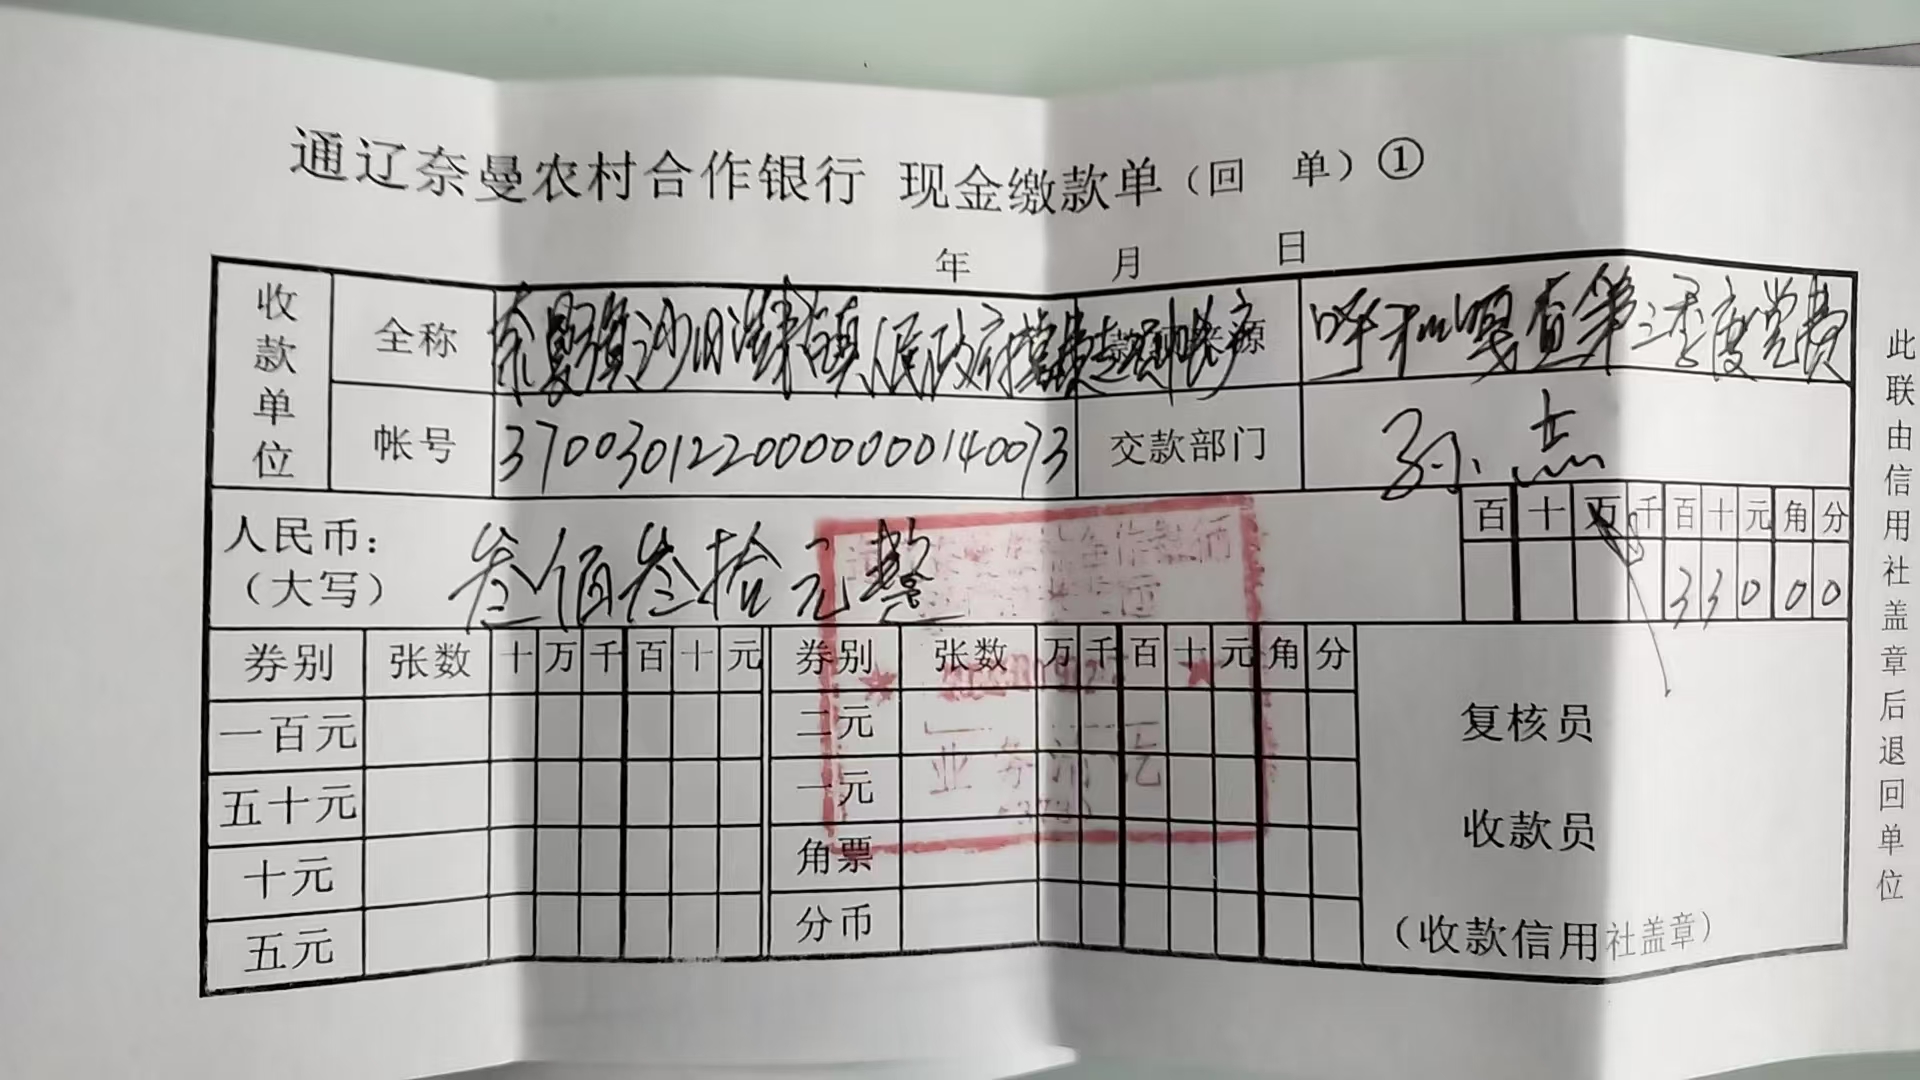 通辽奈曼农村合作银行 现金缴款单(回 单)①
年 月 日
收款单位 全称 奈曼旗沙日浩来镇人民政府党费专户 来源 呼和嘎查第三季度党费
帐号 3700301220000000140073 交款部门 孙杰
人民币:(大写) 叁佰叁拾元整 百 十 万 千 百 十 元 角 分
33000
券别 张数 十 万 千 百 十 元 券别 张数 万 千 百 十 元 角 分
一百元 二元 复核员
五十元 一元 收款员
十元 角票
五元 分币 (收款信用社盖章)
业务清讫
此联由信用社盖章后退回单位